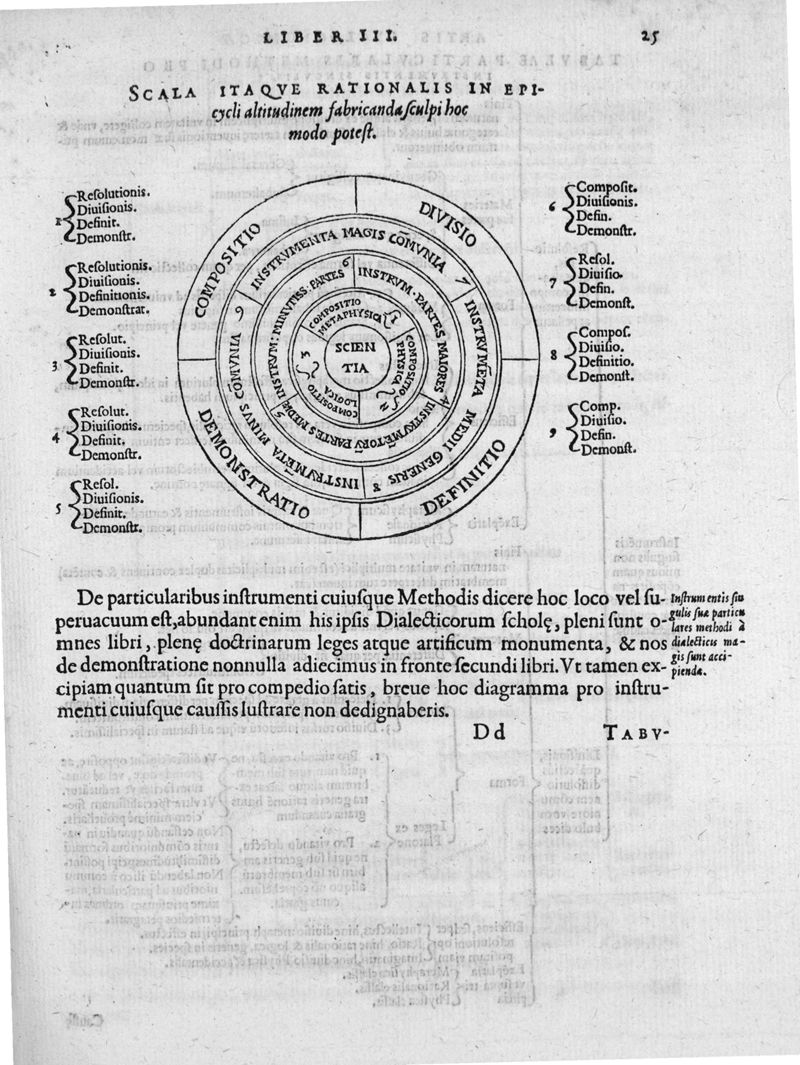 LIBER III. 25
SCALA ITAQVE RATIONALIS IN EPI-
cycli altitudinem fabricanda sculpi hoc
modo potest.
1 Resolutionis.
Diuisionis.
Definit.
Demonstr.
2 Resolutionis.
Diuisionis.
Definitionis.
Demonstrat.
3 Resolut.
Diuisionis.
Definit.
Demonstr.
4 Resolut.
Diuisionis.
Definit.
Demonstr.
5 Resol.
Diuisionis.
Definit.
Demonstr.
COMPOSITIO
DIVISIO
DEFINITIO
DEMONSTRATIO
INSTRVMENTA MAGIS COM̄VNIA 7
INSTRVMĒTA MEDII GENERIS 8
INSTRVMĒTA MINVS COMVNIA 9
INSTRVM. PARTES MAIORES 4
INSTRVMĒTORV̄ PARTES MEDIÆ 5
INSTRVM: MINVTISS. PARTES 6
COMPOSITIO
METAPHYSICA 1
COMPOSITIO
PHYSICA 2
COMPOSITIO
LOGICA 3
SCIEN
TIA
6 Composit.
Diuisionis.
Defin.
Demonstr.
7 Resol.
Diuisio.
Defin.
Demonst.
8 Compos.
Diuisio.
Definitio.
Demonst.
9 Comp.
Diuisio.
Defin.
Demonst.
De particularibus instrumenti cuiusque Methodis dicere hoc loco vel su-
peruacuum est, abundant enim his ipsis Dialecticorum scholę, pleni sunt o-
mnes libri, plenę doctrinarum leges atque artificum monumenta, & nos
de demonstratione nonnulla adiecimus in fronte secundi libri. Vt tamen ex-
cipiam quantum sit pro compedio satis, breue hoc diagramma pro instru-
menti cuiusque caussis lustrare non dedignaberis.
Instrumentis sin
gulis suæ particu
lares methodi à
dialecticis ma-
gis sunt acci-
piendæ.
Dd TABV-